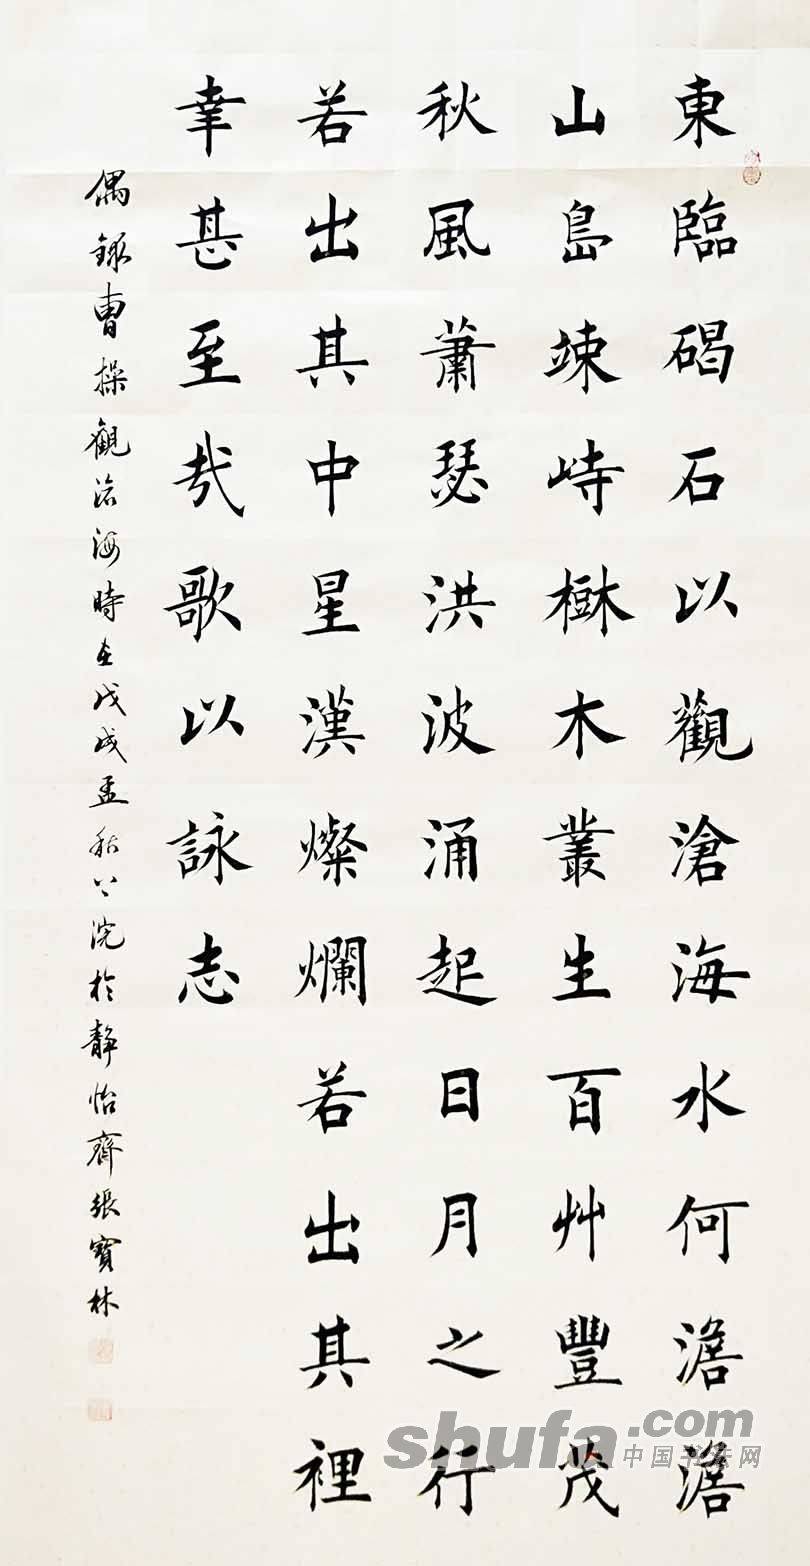 東臨碣石以觀滄海水何澹澹
山島竦峙樹木叢生百艸豐茂
秋風蕭瑟洪波涌起日月之行
若出其中星漢燦爛若出其裡
幸甚至哉歌以詠志
偶錄曹操觀滄海時在戊戌孟秋上浣於靜怡齋張寶林
shufa.com
中国书法网